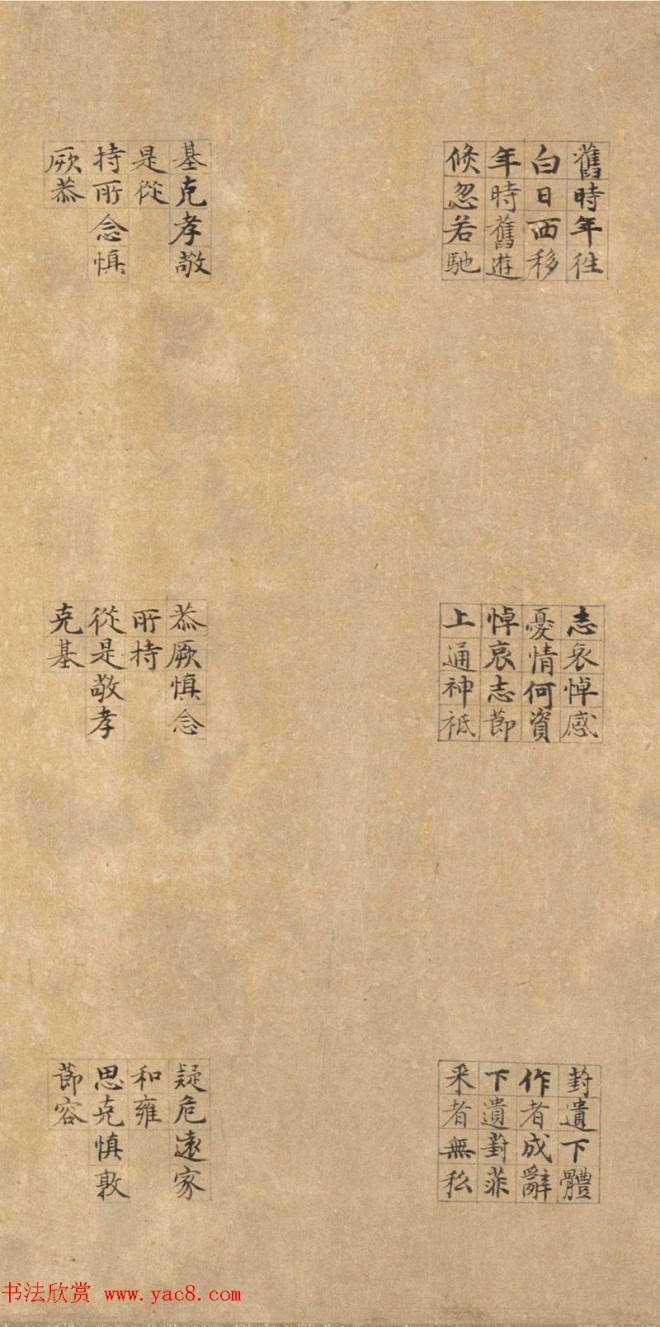 舊時年往
白日西移
年時舊遊
倏忽若馳
基克孝敬
是從
持所念慎
厥恭
志哀悼感
憂情何資
悼哀志節
上通神祇
恭厥慎念
所持
從是敬孝
克基
葑遺下體
作者成辭
下遺葑菲
采者無私
疑危遠家
和雍
思克慎敦
節容
书法欣赏 www.yac8.com